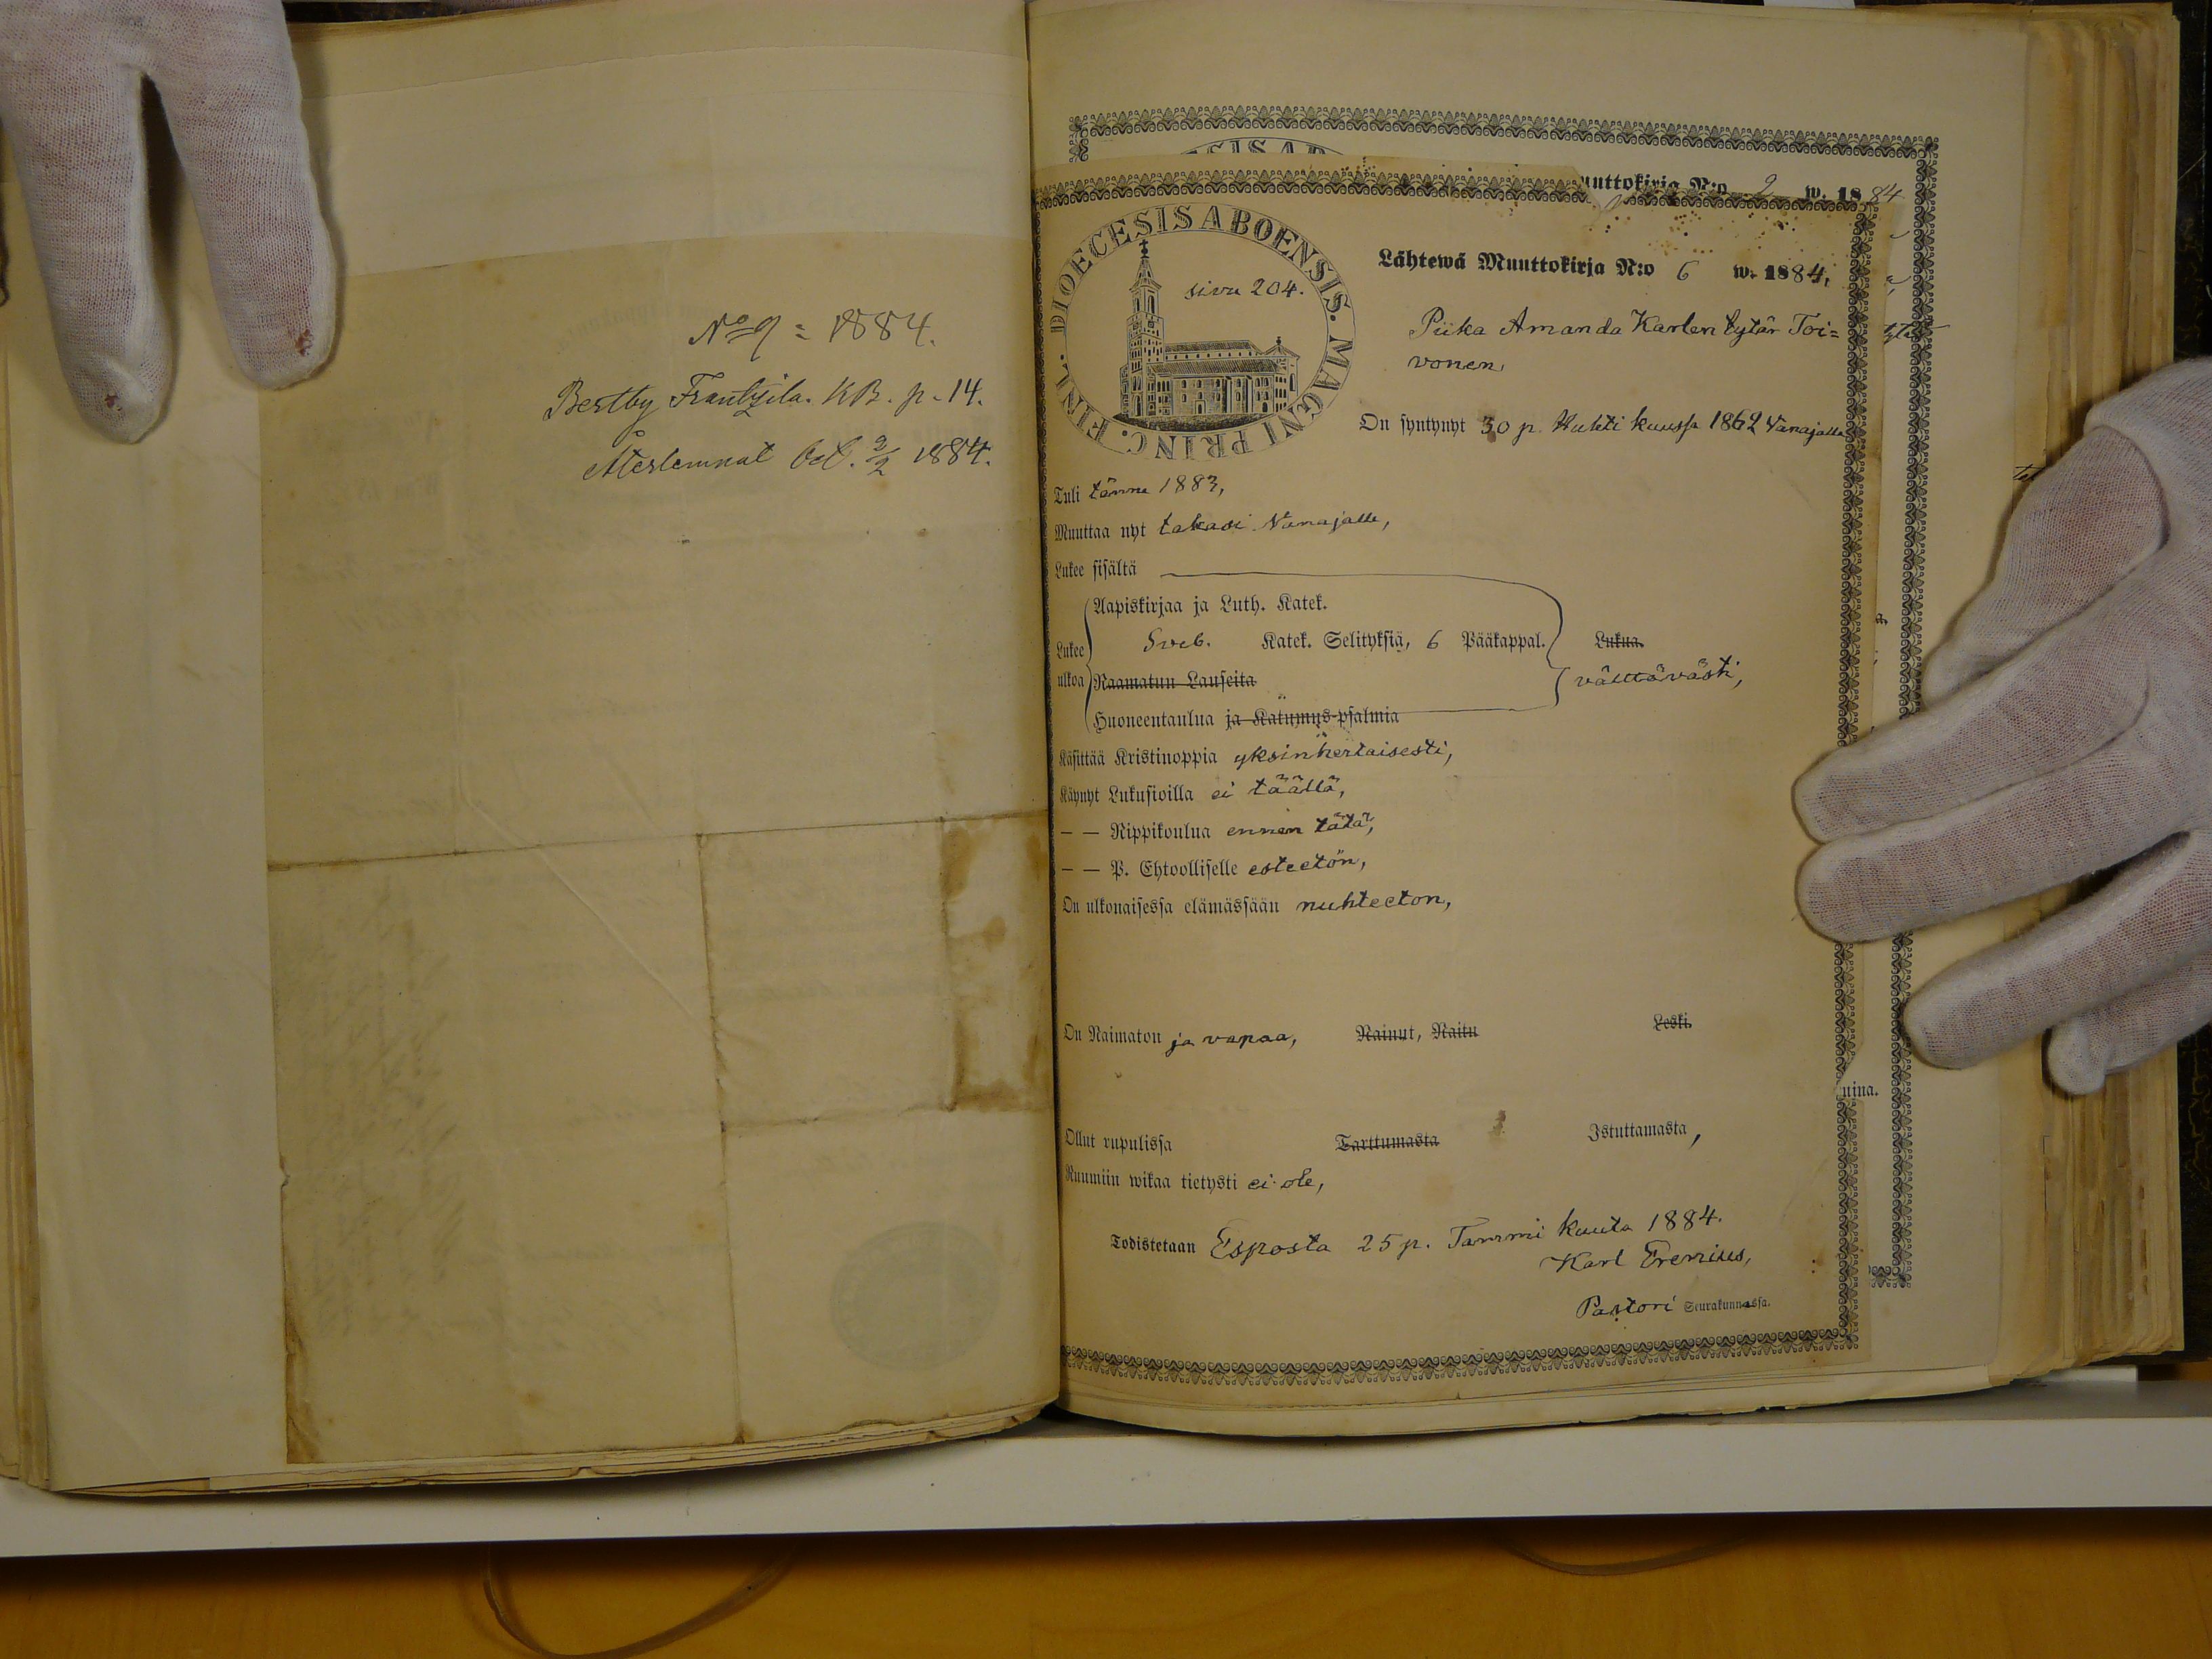 No 9 = 1884.
Bertby Frantsila. KB. p. 14.
Återlemnat Oct. 2/2 1884.
uuttokirja N:o 2 w. 1884
DIOECESIS ABOENSIS. MAGNI PRINC. FINL.
sivu 204.
Lähtewä Muuttokirja N:o 6 w. 1884,
Piika Amanda Karlen tytär Toi=
vonen,
On syntynyt 30 p. Huhti kuussa 1862 Vanajalla
Tuli tänne 1883,
Muuttaa nyt takasi Vanajalle,
Lukee sisältä
Aapiskirjaa ja Luth. Katek.
Lukee Sveb. Katek. Selityksiä, 6 Pääkappal. Lukua.
ulkoa Raamatun Lauseita välttävästi,
Huoneentaulua ja Katumus-psalmia
Käsittää Kristinoppia yksinkertaisesti,
Käynyt Lukusioilla ei täällä,
— — Rippikoulua ennen tätä,
— — P. Ehtoolliselle esteetön,
On ulkonaisessa elämässään nuhteeton,
On Naimaton ja vapaa, Nainut, Naitu Leski.
nina.
Ollut rupulissa Tarttumasta Istuttamasta,
Ruumiin wikaa tietysti ei ole,
Todistetaan Esposta 25 p. Tammi kuuta 1884.
Karl Erenius,
Pastori Seurakunnassa.